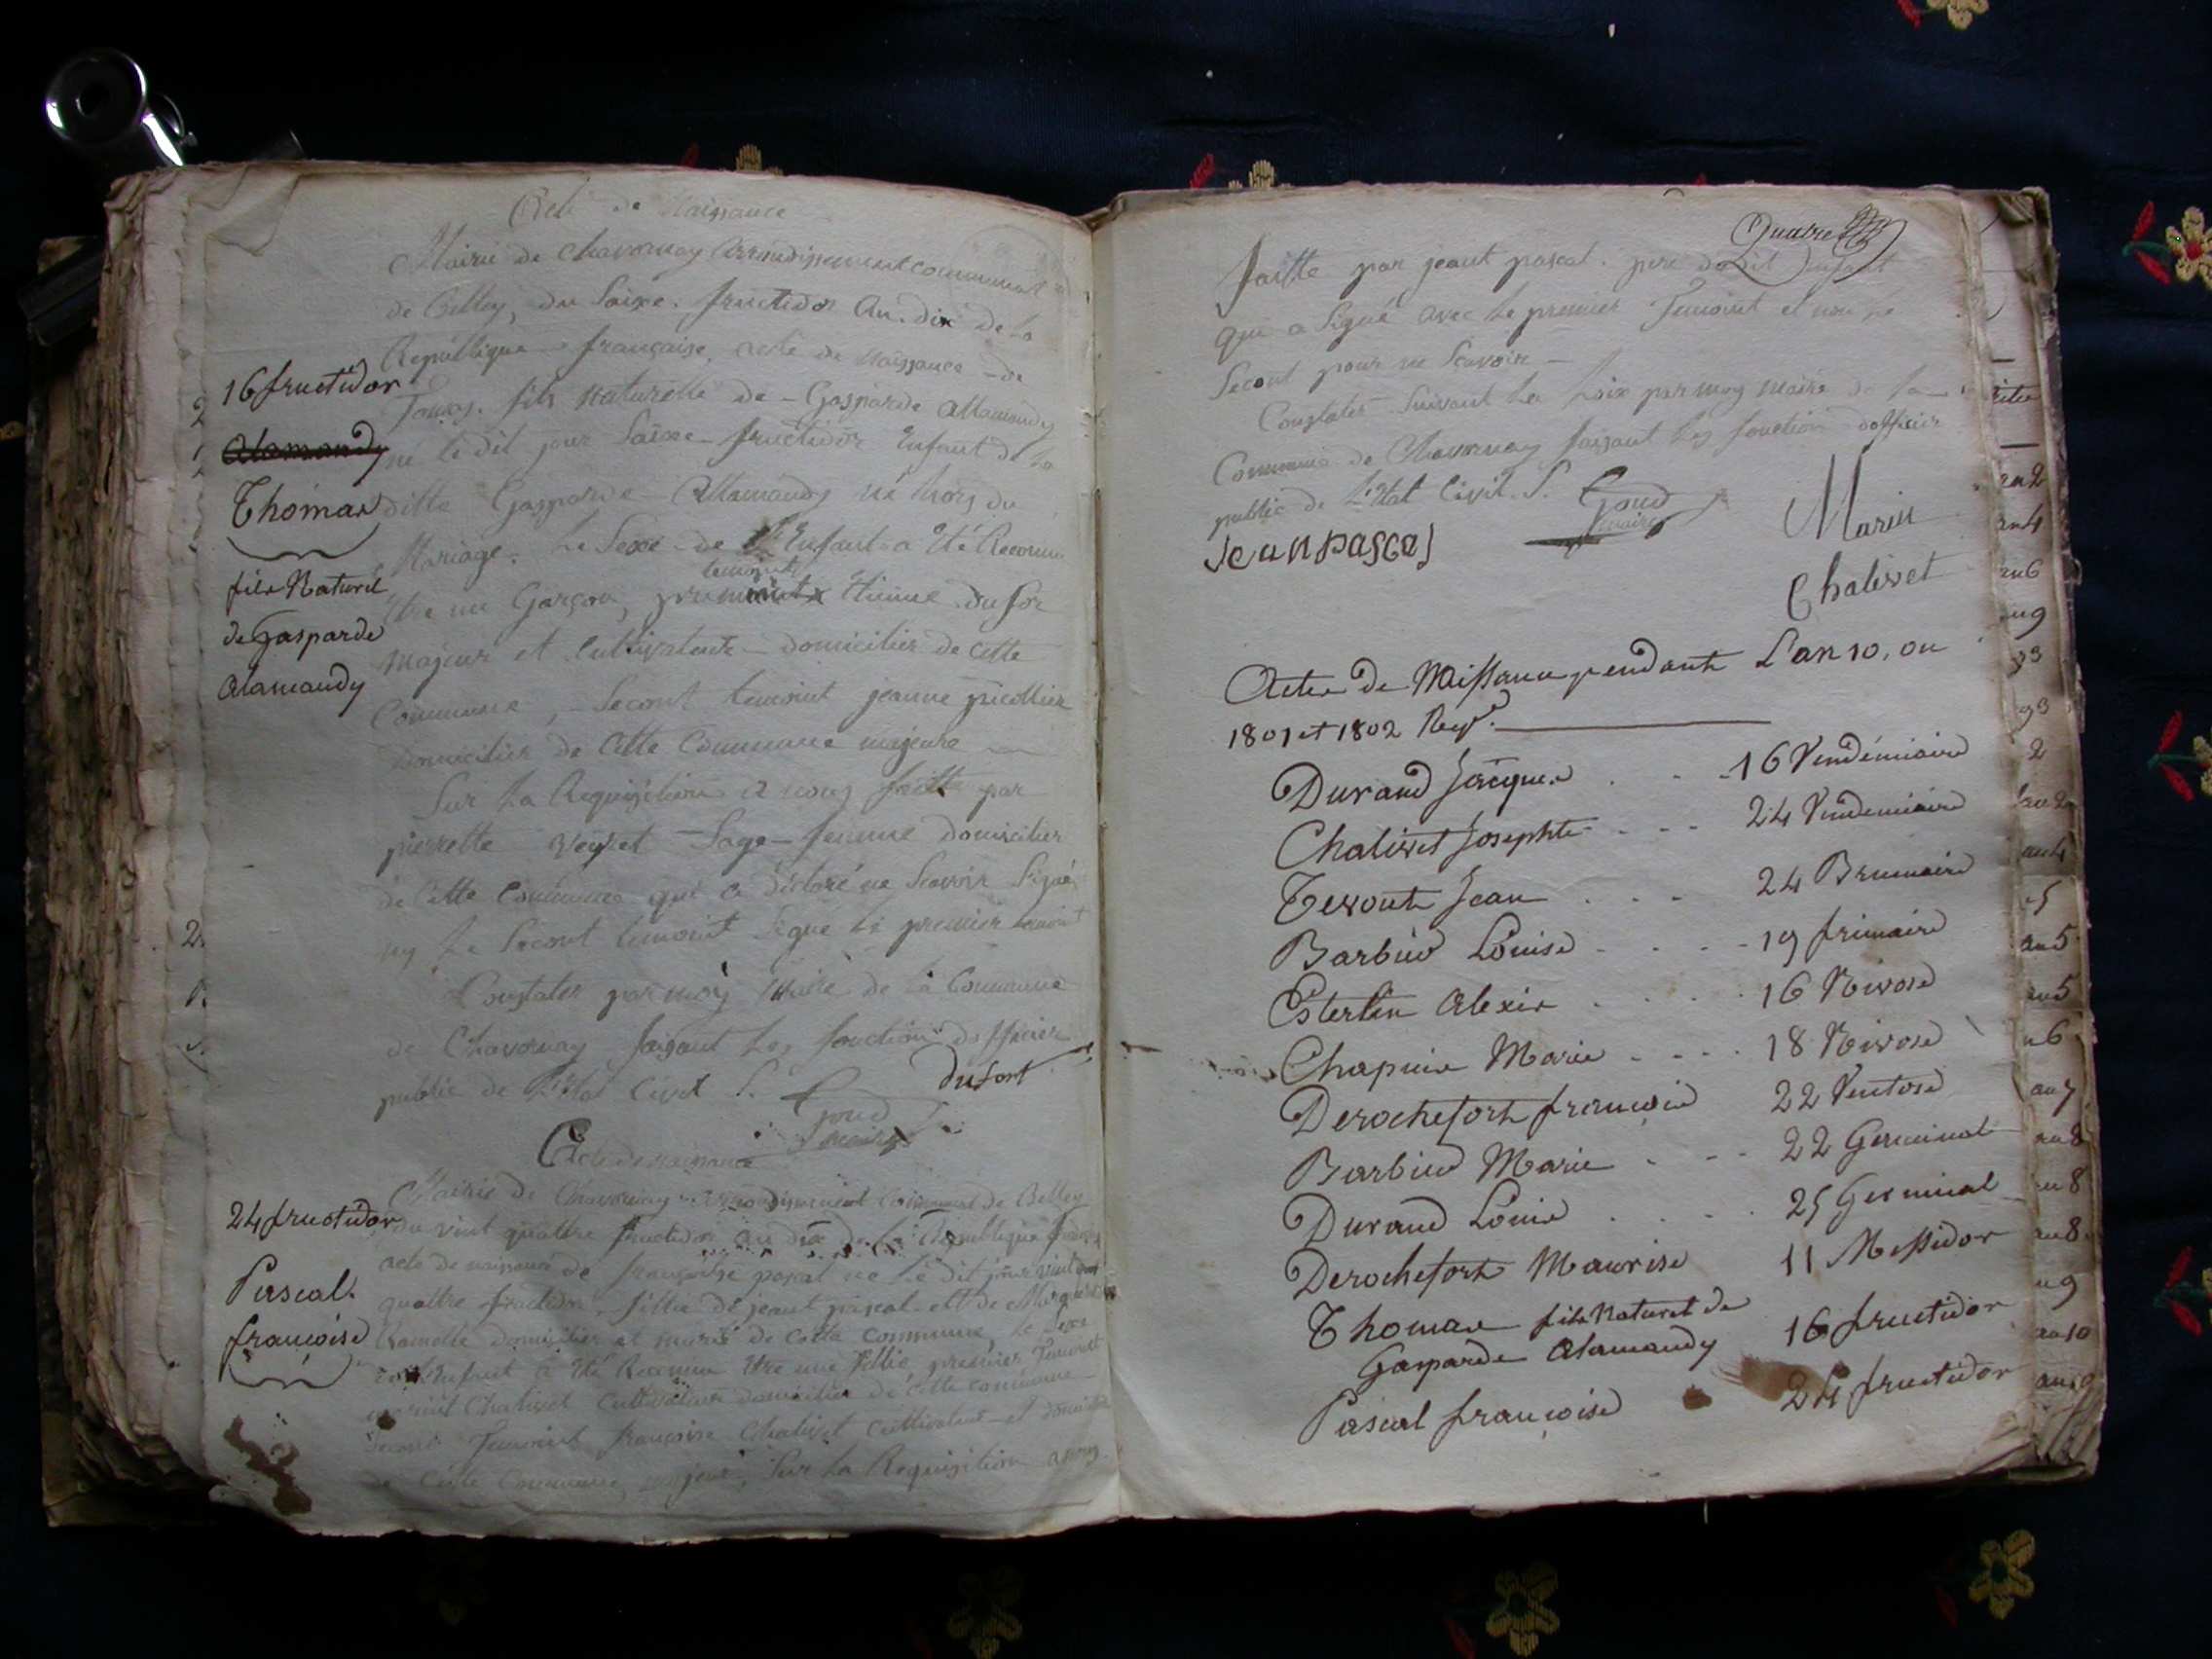 Acte de Naissance
Mairie de Chavornay Arrondissement communal
de Belley, du Saixe. fructidor An. dix de la
Republique française, acte de naissance de
Tomas. fils naturelle de Gasparde Allamandy
né le dit jour Saixe fructidor Enfant de la
ditte Gasparde Allamandy né hors du
Mariage. Le Sexe de l'Enfant a Eté Reconnu
Etre un Garçon, premier temoint Etienne dufor
Majeur et Cultivateur domicilier de cette
Commune, Secont temoint jeanne picollier
Domicilier de Cette Commune majeure
Sur La Requisition a nous faitte par
pierrette Veyret Sage femme domicilier
de Cette Commune qui a déclaré ne Scavoir Signé
ny Le Secont temoint Signé le premier temoint
Constater par moy Maire de la Commune
de Chavornay faisant Les fonction dofficier
public de L'Etat Civil S. Goud dufort
maire
16 fructidor
Alamandy
Thomas
fils Naturel
de Gasparde
Alamandy
Acte de naissance
Mairie de Chavornay arrondissement Communal de Belley
du vint quattre fructidor an dix de la Republique
acte de naissance de françoise pascal né le dit jour vint
quattre fructidor fillie de jeant pascal et de
domicilier et mariés de cette commune, le sexe
de l'Enfant a Eté Reconnu Etre une fillie premier Temoint
Chalivet Cultivateur domicilier de cette commune
Secont Temoint françoise Chalivet Cultivateur et domicilier
de Cette Commune, majeur, Sur La Requisition a nous
24 fructidor
Pascal
françoise
Quatre
faitte par jeant pascal. pere dudit enfant
qui a Signé avec Le premier Temoint et non le
Secont pour ne Scavoir
Constater Suivant Les Loix par moy maire de la
Commune de Chavornay faisant les fonction dofficier
public de L'Etat Civil. S. Goud
maire
jean pascal
Marin
Chalivet
Actes de Naissance pendant L'an 10, ou
1801 et 1802
Durand Jacques . . . 16 Vendémiaire
Chalivet Josephte . . . 24 Vendémiaire
Tevout Jean . . . 24 Brumaire
Barbier Louise . . . 19 frimaire
Esterlin Alexis . . . 16 Nivose
Chapuis Marie . . . 18 Nivose
Derochefort françois 22 Ventose
Barbier Marie . . . 22 Germinal
Durand Louis . . . 25 Germinal
Derochefort Maurise 11 Messidor
Thomas fils Naturel de
Gasparde Alamandy 16 fructidor
Pascal françoise 24 fructidor